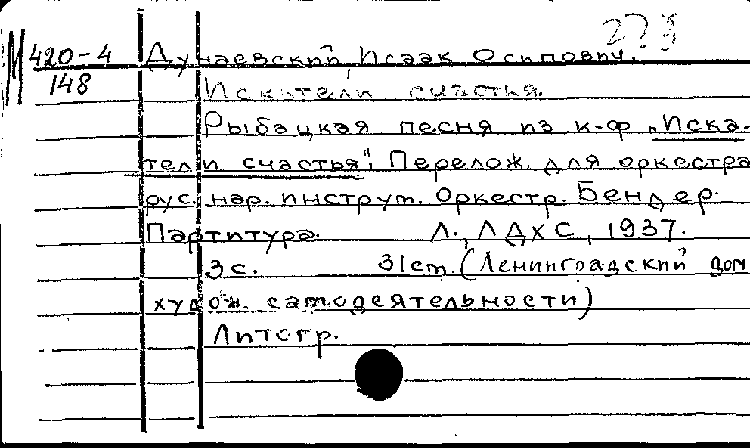 М 420-4 Дунаевский, Исаак Осипович.
148 Искатели счастья.
Рыбацкая песня из к-ф „Иска-
тели счастья"; Перелож. для оркестра
рус. нар. инструм. Оркестр. Бендер.
Партитура. Л., ЛДХС, 1937.
3 с. 31 см. (Ленинградский дом
худож. самодеятельности)
Литогр.